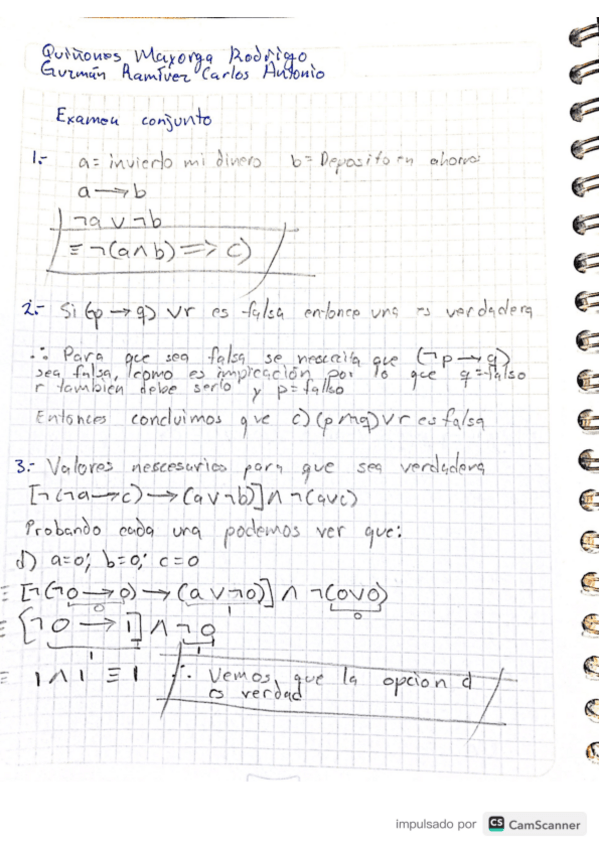 Quiñones Mayorga Rodrigo
Guzmán Ramírez Carlos Antonio
Examen conjunto
1.- a= invierto mi dinero b= Deposito en ahorro
a → b
¬a ∨ ¬b
≡ ¬(a∧b) => c)
2.- Si (p → q) ∨ r es falsa entonce una es verdadera
∴ Para que sea falsa se nescesita que (¬p → q)
sea falsa, como es implicación por lo que q = falso
r también debe serlo y p = falso
Entonces concluimos que c) (p ∧ q) ∨ r es falsa
3.- Valores nescesarios para que sea verdadera
[¬(¬a → c) → (a ∨ ¬b)] ∧ ¬(a∨c)
Probando cada una podemos ver que:
d) a=0; b=0; c=0
≡ [¬(¬0 → 0) → (a ∨ ¬0)] ∧ ¬(0∨0)
0 1 0
≡ [¬0 → 1] ∧ ¬0
1 1
≡ 1 ∧ 1 ≡ 1 ∴ Vemos que la opcion d
es verdad
impulsado por CS CamScanner